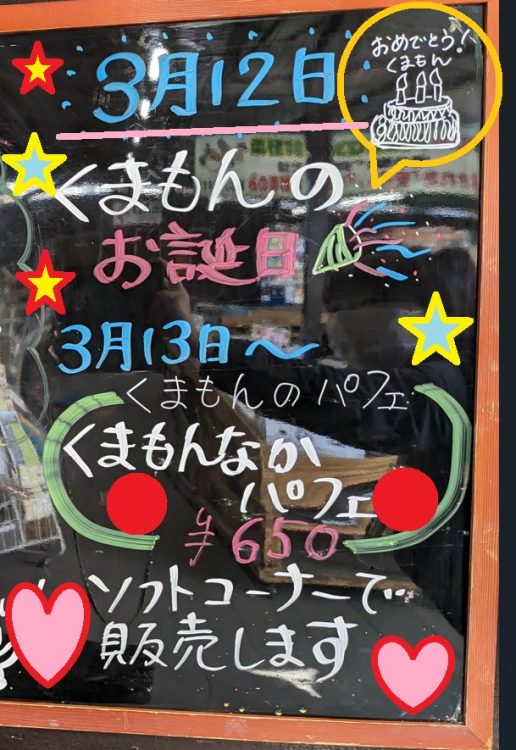 おめでとう!
くまもん
3月12日
くまもんの
お誕日
3月13日〜
くまもんのパフェ
くまもんなか
パフェ
¥650
ソフトコーナーで
販売します